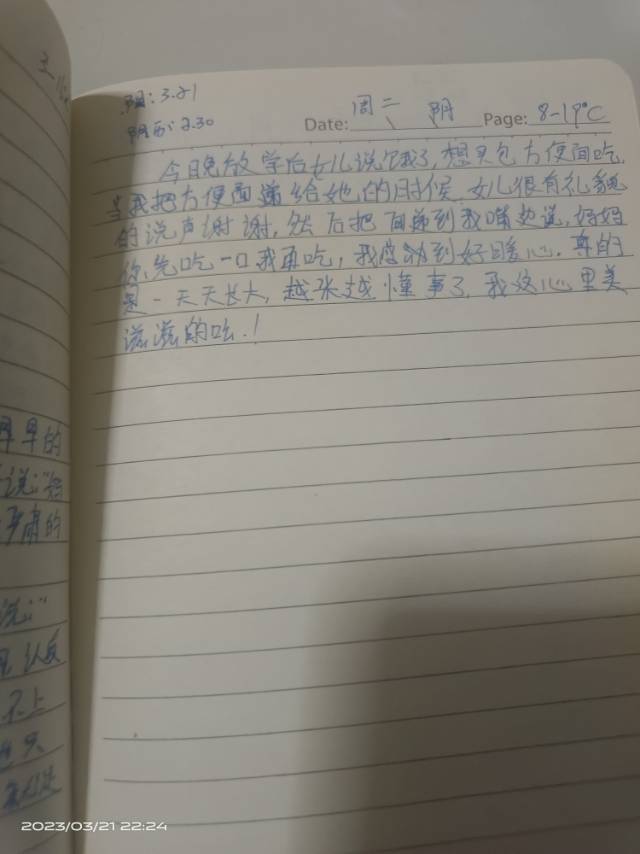 阳: 3.21
阴历: 2.30
Date: 周二 阴 Page: 8-19℃
今日晚放学后女儿说饿了,想買包方便面吃,
当我把方便面递给她的时候,女儿很有礼貌
的说声谢谢,然后把面递到我嘴边说,妈妈
你先吃一口我再吃,我感动到好暖心.真的
是一天天长大,越来越懂事了.我这心里美
滋滋的吆.!
早早的
严肃的
说:“
不上
2023/03/21 22:24